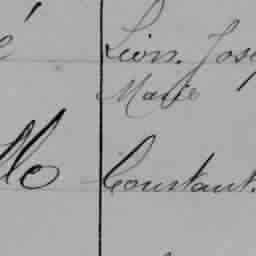 é Léon. Jos
Marie
lle Constant.